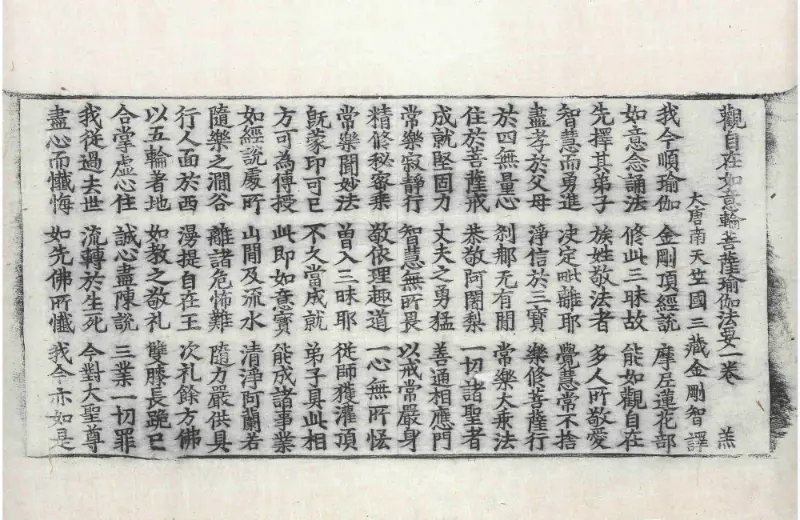 觀自在如意輪菩薩瑜伽法要一卷 羔
大唐南天竺國三藏金剛智譯
我今順瑜伽 金剛頂經說 摩尼蓮花部
如意念誦法 修此三昧故 能如觀自在
先擇其弟子 族姓敬法者 多人所敬愛
智慧而勇進 决定毗離耶 覺慧常不捨
盡孝於父母 淨信於三寶 樂修菩薩行
於四無量心 刹那无有間 常樂大乘法
住於菩薩戒 恭敬阿闍梨 一切諸聖者
成就堅固力 丈夫之勇猛 善通相應門
常樂寂靜行 智慧無所畏 以戒常嚴身
精修秘密乘 敬依理趣道 一心無所恡
常樂聞妙法 曾入三昧耶 從師獲灌頂
旣蒙印可已 不久當成就 弟子具此相
方可為傳授 此即如意寶 能成諸事業
如經說處所 山間及流水 清淨阿蘭若
隨樂之澗谷 離諸危怖難 隨力嚴供具
行人面於西 湯提自在王 次礼餘方佛
以五輪著地 如教之敬礼 雙膝長跪已
合掌虛心住 誠心盡陳說 三業一切罪
我從過去世 流轉於生死 今對大聖尊
盡心而懺悔 如先佛所懺 我今亦如是